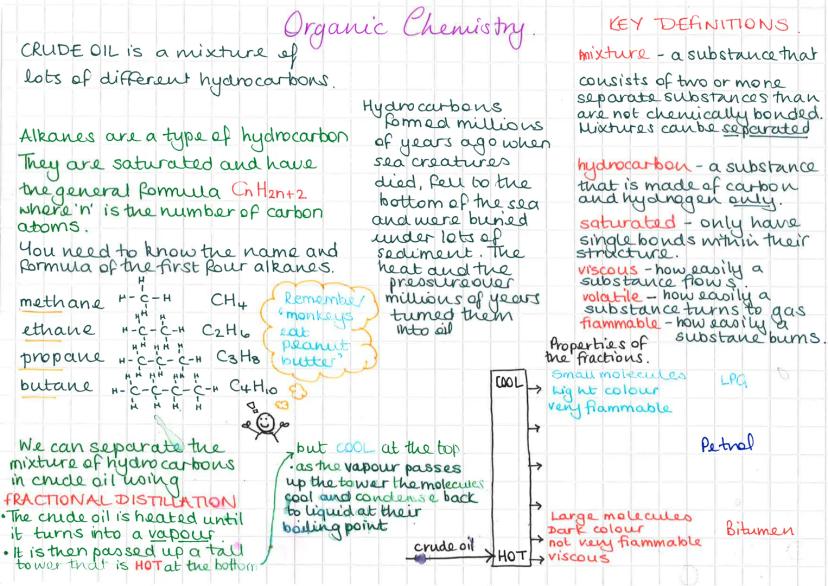 Organic Chemistry.
CRUDE OIL is a mixture of
lots of different hydrocarbons.
Alkanes are a type of hydrocarbon
They are saturated and have
the general formula CnH2n+2
where 'n' is the number of carbon
atoms.
You need to know the name and
formula of the first four alkanes.
methane
H
H-C-H
H
CH4
ethane
H H
H-C-C-H
H H
C2H6
propane
H H H
H-C-C-C-H
H H H
C3H8
butane
H H H H
H-C-C-C-C-H
H H H H
C4H10
Remember
'monkeys
eat
peanut
butter'
Hydrocarbons
formed millions
of years ago when
sea creatures
died, fell to the
bottom of the sea
and were buried
under lots of
sediment. The
heat and the
pressure over
millions of years
turned them
into oil
KEY DEFINITIONS.
mixture - a substance that
consists of two or more
separate substances than
are not chemically bonded.
Mixtures can be separated
hydrocarbon - a substance
that is made of carbon
and hydrogen only.
saturated - only have
single bonds within their
structure.
viscous - how easily a
substance flows.
volatile - how easily a
substance turns to gas
flammable - how easily a
substane burns.
We can separate the
mixture of hydrocarbons
in crude oil using
FRACTIONAL DISTILLATION
• The crude oil is heated until
it turns into a vapour.
• It is then passed up a tall
tower that is HOT at the bottom
but COOL at the top
• as the vapour passes
up the tower the molecules
cool and condense back
to liquid at their
boiling point
Properties of
the fractions.
COOL
Small molecules
Light colour
very flammable
LPG
Petrol
Large molecules
Dark colour
not very flammable
viscous
Bitumen
crude oil
HOT